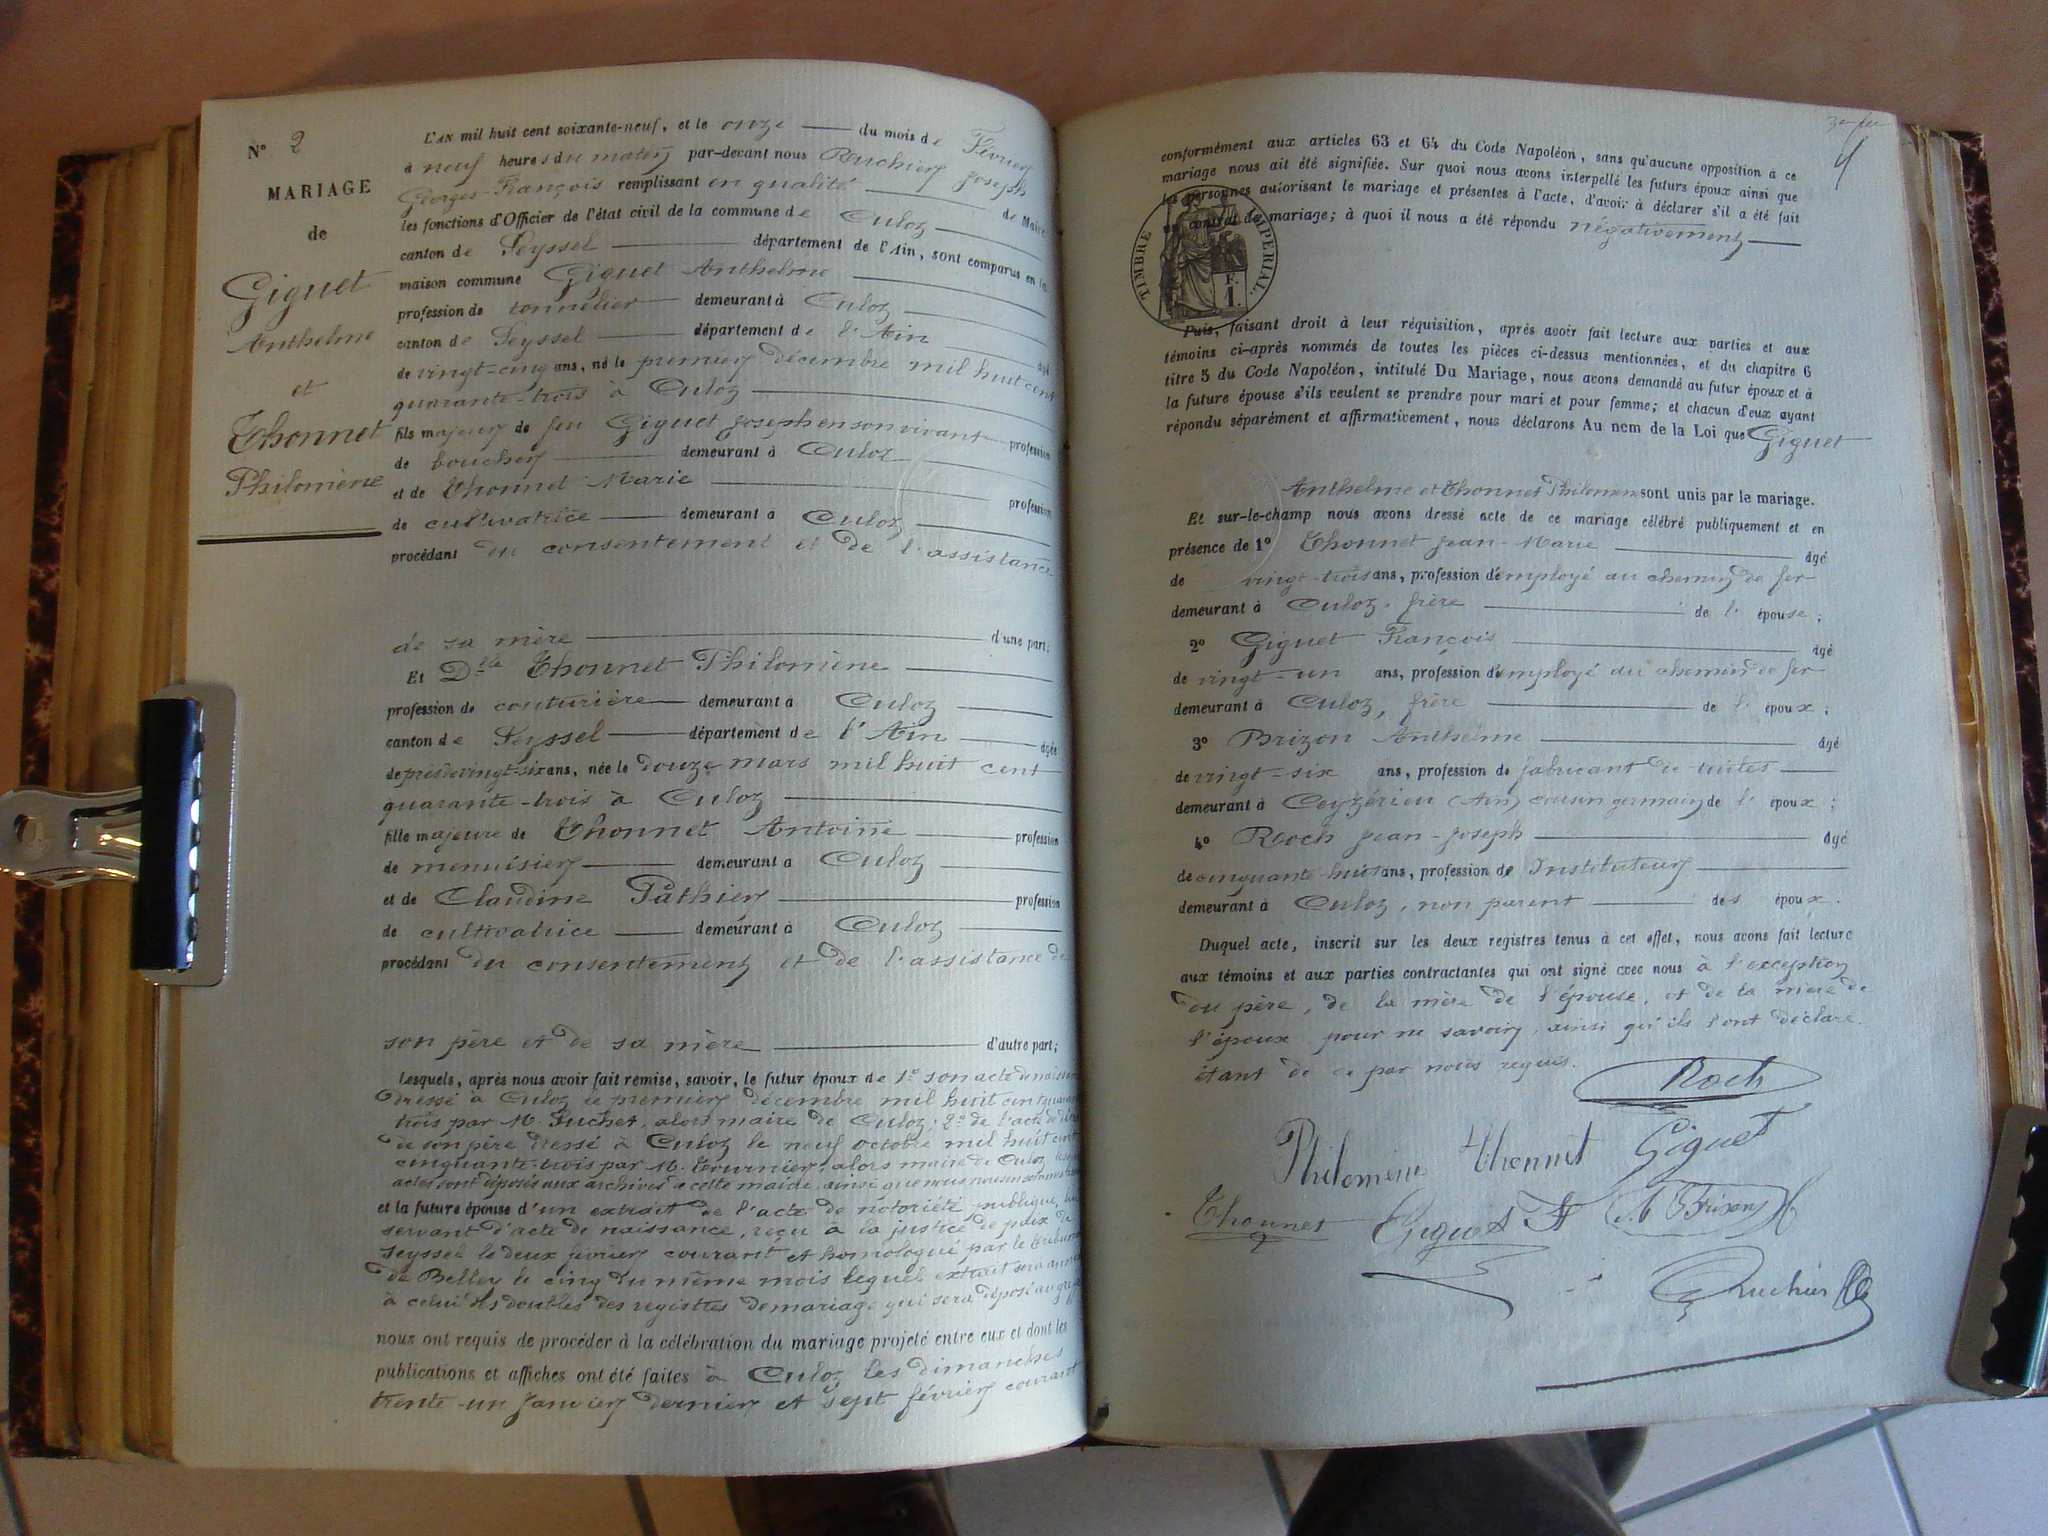 N° 2
MARIAGE
de
Giguet
Anthelme
et
Thonnet
Philomène
L'AN mil huit cent soixante-neuf, et le onze du mois de Février
à neuf heures du matin par-devant nous Ruchier Joseph
Georges-François remplissant en qualité de Maire
les fonctions d'Officier de l'état civil de la commune de Culoz
canton de Seyssel département de l'Ain, sont comparus en la
maison commune Giguet Anthelme
profession de tonnelier demeurant à Culoz
canton de Seyssel département de l'Ain âgé
de vingt-cinq ans, né le premier décembre mil huit cent
quarante-trois à Culoz
fils majeur de feu Giguet Joseph en son vivant profession
de boucher demeurant à Culoz
et de Thonnet Marie profession
de cultivatrice demeurant à Culoz
procédant du consentement et de l'assistance
de sa mère d'une part;
Et Dlle Thonnet Philomène
profession de couturière demeurant à Culoz
canton de Seyssel département de l'Ain âgée
de près de vingt-six ans, née le douze mars mil huit cent
quarante-trois à Culoz
fille majeure de Thonnet Antoine profession
de menuisier demeurant à Culoz
et de Claudine Pâthier profession
de cultivatrice demeurant à Culoz
procédant du consentement et de l'assistance de
son père et de sa mère d'autre part;
Lesquels, après nous avoir fait remise, savoir, le futur époux de 1° son acte de
dressé à Culoz le premier décembre mil huit cent
trois par M. Suchet, alors maire de Culoz; 2° de l'acte de
de son père dressé à Culoz le neuf octobre mil huit cent
cinquante-trois par M. Tournier, alors maire de Culoz
actes sont déposés aux archives de cette mairie, ainsi que nous nous en sommes
et la future épouse d'un extrait de l'acte de notoriété publique,
servant d'acte de naissance, reçu à la justice de paix de
Seyssel le deux février courant et homologué par le tribunal
de Belley le cinq du même mois lequel extrait sera annexé
à celui des doubles des registres de mariage qui sera déposé au greffe
nous ont requis de procéder à la célébration du mariage projeté entre eux et dont les
publications et affiches ont été faites à Culoz les dimanches
trente-un janvier dernier et sept février courant
4
conformément aux articles 63 et 64 du Code Napoléon, sans qu'aucune opposition à ce
mariage nous ait été signifiée. Sur quoi nous avons interpellé les futurs époux ainsi que
les personnes autorisant le mariage et présentes à l'acte, d'avoir à déclarer s'il a été fait
un contrat de mariage; à quoi il nous a été répondu négativement
TIMBRE IMPÉRIAL.
F.
1.
Puis, faisant droit à leur réquisition, après avoir fait lecture aux parties et aux
témoins ci-après nommés de toutes les pièces ci-dessus mentionnées, et du chapitre 6
titre 5 du Code Napoléon, intitulé Du Mariage, nous avons demandé au futur époux et à
la future épouse s'ils veulent se prendre pour mari et pour femme; et chacun d'eux ayant
répondu séparément et affirmativement, nous déclarons Au nom de la Loi que Giguet
Anthelme et Thonnet Philomène sont unis par le mariage.
Et sur-le-champ nous avons dressé acte de ce mariage célébré publiquement et en
présence de 1° Thonnet Jean-Marie âgé
de vingt-trois ans, profession d'employé au chemin de fer
demeurant à Culoz, frère de l'épouse;
2° Giguet François âgé
de vingt-un ans, profession d'employé au chemin de fer
demeurant à Culoz, frère de l'époux;
3° Brizon Anthelme âgé
de vingt-six ans, profession de fabricant de tuiles
demeurant à Ceyzérieu (Ain) cousin germain de l'époux;
4° Roch Jean-Joseph âgé
de cinquante-huit ans, profession de Instituteur
demeurant à Culoz, non parent des époux.
Duquel acte, inscrit sur les deux registres tenus à cet effet, nous avons fait lecture
aux témoins et aux parties contractantes qui ont signé avec nous à l'exception
du père, de la mère de l'épouse, et de la mère de
l'époux pour ne savoir, ainsi qu'ils l'ont déclaré
étant de ce par nous requis.
Roch
Philomène Thonnet Giguet
Thonnet Giguet F
Ruchier